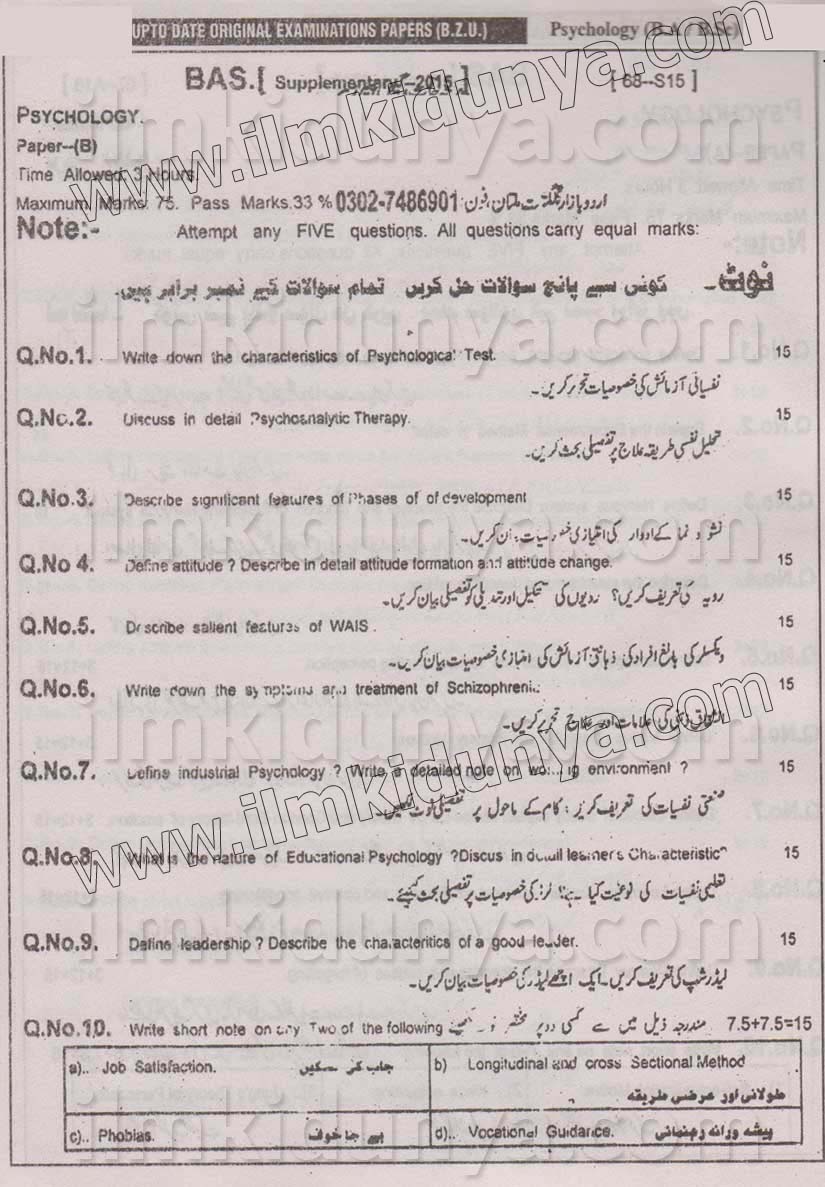 UPTO DATE ORIGINAL EXAMINATIONS PAPERS (B.Z.U.) Psychology (B.A / B.Sc)
BAS.[ Supplementary--2015 ] [ 68--S15 ]
PSYCHOLOGY.
Paper--(B)
Time Allowed: 3 Hours.
Maximum Marks: 75. Pass Marks.33 % 0302-7486901 اردو بازار گلگشت ملتان، فون
Note:- Attempt any FIVE questions. All questions carry equal marks:
نوٹ۔ کوئی سے پانچ سوالات حل کریں تمام سوالات کے نمبر برابر ہیں۔
Q.No.1. Write down the characteristics of Psychological Test. 15
نفسیاتی آزمائش کی خصوصیات تحریر کریں۔
Q.No.2. Discuss in detail Psychoanalytic Therapy. 15
تحلیل نفسی طریقہ علاج پر تفصیلی بحث کریں۔
Q.No.3. Describe significant features of Phases of of development 15
نشو و نما کے ادوار کی امتیازی کریں۔
Q.No 4. Define attitude ? Describe in detail attitude formation and attitude change. 15
رویہ کی تعریف کریں؟ رویوں کی تشکیل اور تبدیلی کو تفصیلی بیان کریں۔
Q.No.5. Describe salient features of WAIS . 15
ویکسلر کی بالغ افراد کی ذہانتی آزمائش کی امتیازی خصوصیات بیان کریں۔
Q.No.6. Write down the symptoms and treatment of Schizophrenia 15
کی علامات اور علاج تحریر کریں۔
Q.No.7. Define industrial Psychology ? Write a detailed note on working environment ? 15
صنعتی نفسیات کی تعریف کریں؛ کام کے ماحول پر تفصیلی نوٹ لکھیں۔
Q.No.8. What is the nature of Educational Psychology ?Discus in detail learners Characteristic 15
تعلیمی نفسیات کی نوعیت کیا ہے؟ کی خصوصیات پر تفصیلی بحث کیجئے۔
Q.No.9. Define leadership ? Describe the characteritics of a good leader. 15
لیڈر شپ کی تعریف کریں۔ ایک اچھے لیڈر کی خصوصیات بیان کریں۔
Q.No.10. Write short note on any Two of the following مندرجہ ذیل میں سے کسی دو پر مختصر 7.5+7.5=15
a).. Job Satisfaction. جاب کی تسکین
b) Longitudinal and cross Sectional Method
طولانی اور عرضی طریقہ
c).. Phobias. بے جا خوف
d).. Vocational Guidance. پیشہ ورانہ رہنمائی
www.ilmkidunya.com
www.ilmkidunya.com
ilmkidunya.com
ilmkidunya.com
ilmkidunya.com
ilmkidunya.com
ilmkidunya.com
ilmkidunya.com